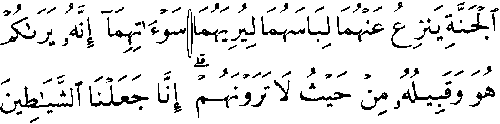 ٱلۡجَنَّةِ يَنزِعُ عَنۡهُمَا لِبَاسَهُمَا لِيُرِيَهُمَا سَوۡءَٰتِهِمَآۚ إِنَّهُۥ يَرَىٰكُمۡ
هُوَ وَقَبِيلُهُۥ مِنۡ حَيۡثُ لَا تَرَوۡنَهُمۡۗ إِنَّا جَعَلۡنَا ٱلشَّيَٰطِينَ